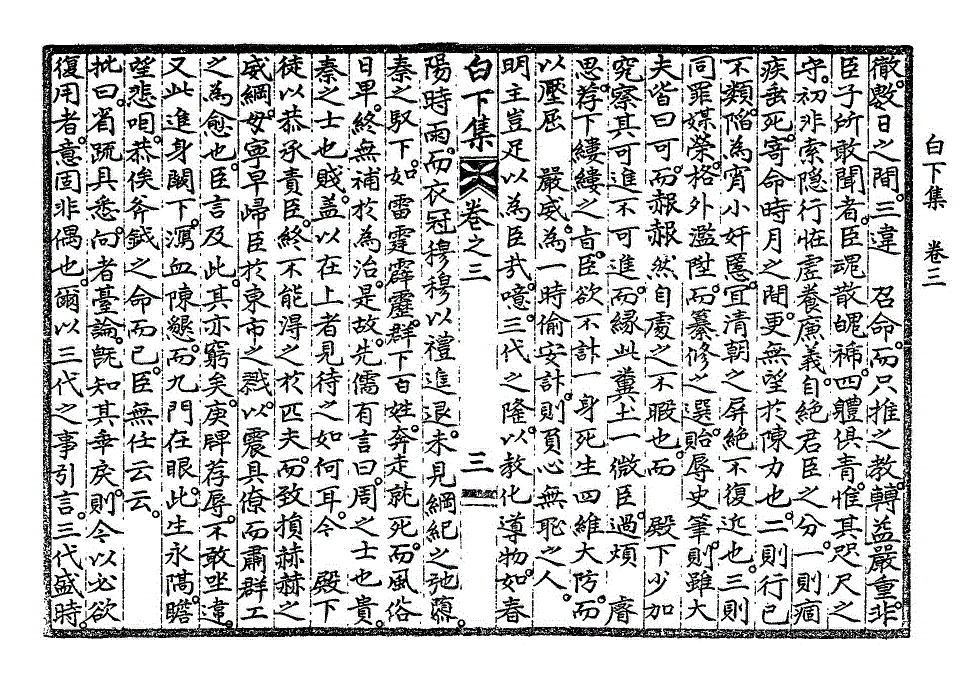 徹。數日之間。三違 召命。而只推之敎。轉益嚴重。非
臣子所敢聞者。臣魂散魄褫。四體俱靑。惟其咫尺之
守。初非索隱行怪。虛養廉義。自絶君臣之分。一則痼
疾垂死。寄命時月之間。更無望於陳力也。二則行己
不類。陷爲宵小奸慝。宜淸朝之屛絶不復近也。三則
同罪媒榮。格外濫陞。而纂修之選。貽辱史筆。則雖大
夫皆曰可。而赧赧然自處之不暇也。而 殿下少加
究察其可進不可進。而緣此糞土一微臣。過煩 睿
思。荐下縷縷之旨。臣欲不計一身死生四維大防。而
以壓屈 嚴威。爲一時偷安計。則負心無恥之人。
明主豈足以爲臣哉。噫。三代之隆。以敎化導物。如春
白下集 卷之三 三
陽時雨。而衣冠穆穆以禮進退。未見綱紀之弛隳。
秦之馭下。如雷霆霹靂。群下百姓。奔走就死。而風俗
日卑。終無補於爲治。是故。先儒有言曰。周之士也貴。
秦之士也賤。蓋以在上者見待之如何耳。今 殿下
徒以恭承責臣。終不能得之於匹夫。而致損赫赫之
威綱。毋寧早歸臣於東市之戮。以震具僚而肅群工
之爲愈也。臣言及此。其亦窮矣。庚牌荐辱。不敢坐違。
又此進身闕下。瀝血陳懇。而九門在眼。此生永隔。瞻
望悲咽。恭俟斧鉞之命而已。臣無任云云。
批曰。省疏具悉。向者臺論。旣知其乖戾。則今以必欲
復用者。意固非偶也。爾以三代之事引言。三代盛時。
白下集 卷三